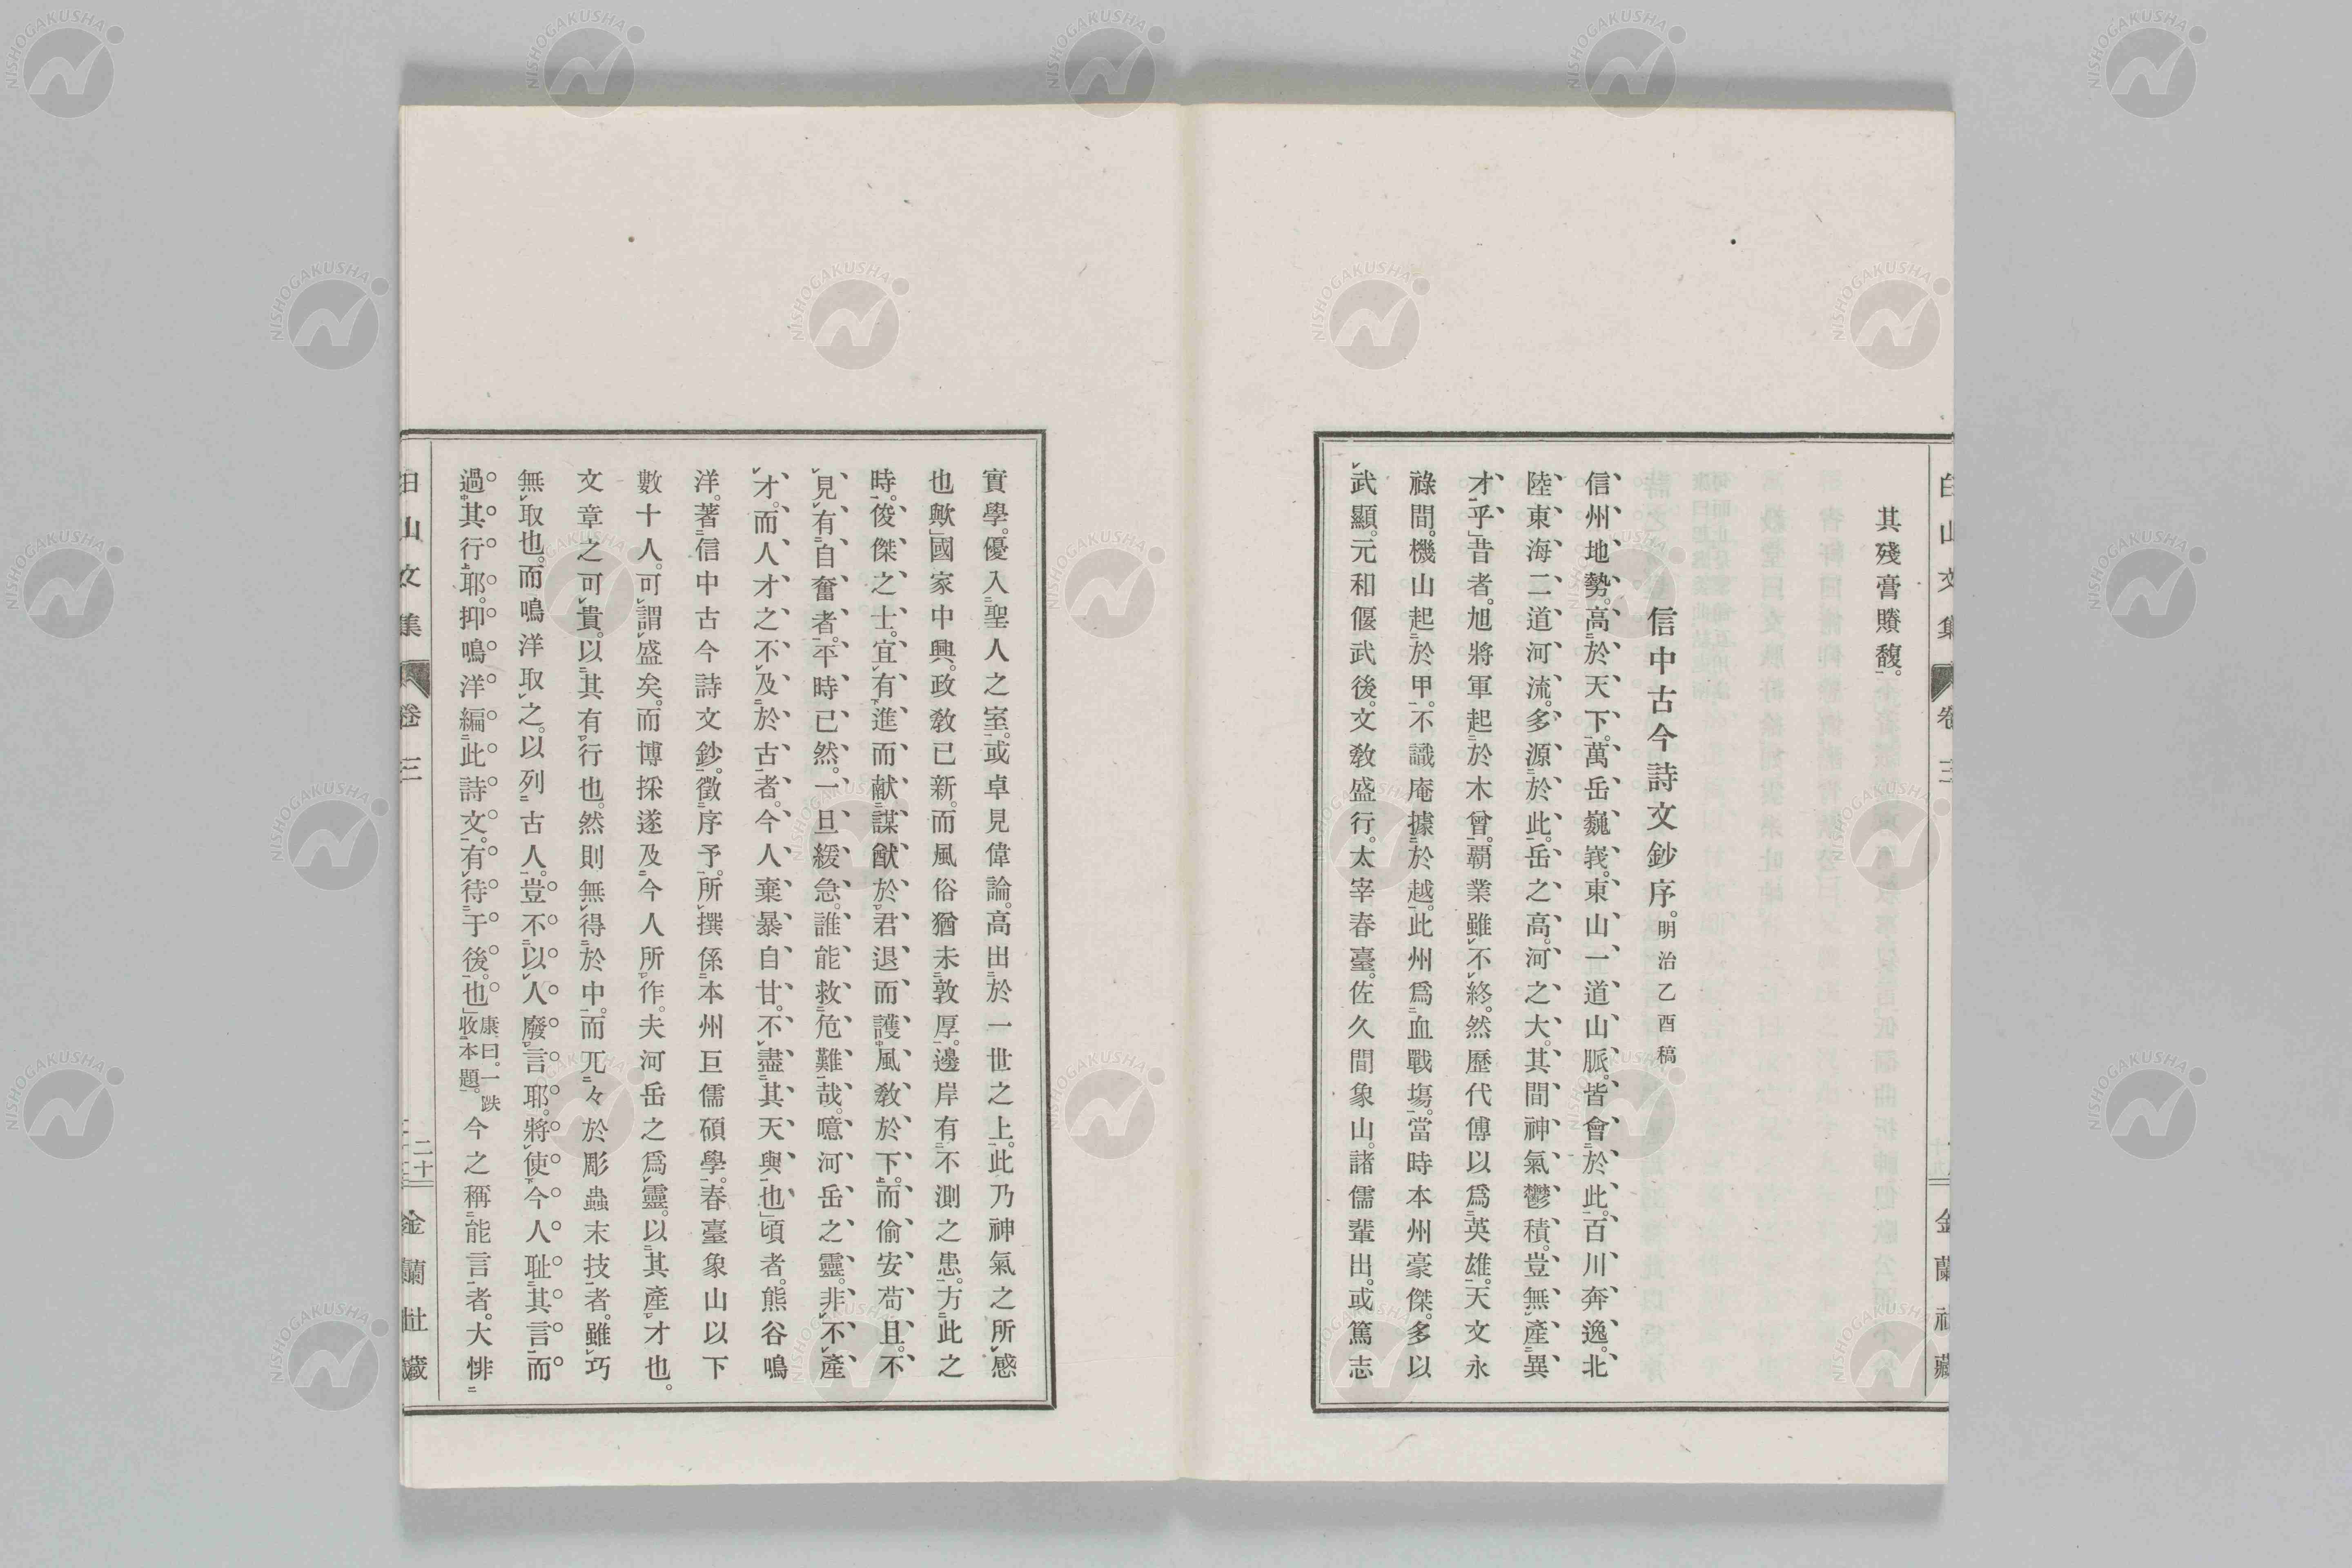 白山文集 卷三 金蘭社藏
其殘膏賸馥。
信中古今詩文鈔序。明治乙酉稿
信州地勢。高於天下。萬岳巍峩。東山一道山脈。皆會於此。百川奔逸。北
陸東海二道河流。多源於此。岳之高。河之大。其間神氣鬱積。豈無產異
才乎」昔者。旭將軍起於木曾。覇業雖不終。然歷代傳以爲英雄。天文永
祿間。機山起於甲。不識庵據於越。此州爲血戰塲。當時本州豪傑。多以
武顯。元和偃武後。文敎盛行。太宰春臺。佐久間象山。諸儒輩出。或篤志
實學。優入聖人之室。或卓見偉論。高出於一世之上。此乃神氣之所感
也歟」國家中興。政敎已新。而風俗猶未敦厚。邊岸有不測之患。方此之
時。俊傑之士。宜有進而献謀猷於君退而護風敎於下。而偷安苟且。不
見有自奮者。平時已然。一旦緩急。誰能救危難哉。噫河岳之靈。非不產
才。而人才之不及於古者。今人棄暴自甘。不盡其天與也」頃者。熊谷鳴
洋。著信中古今詩文鈔。徵序予。所撰係本州巨儒碩學。春臺象山以下
數十人。可謂盛矣。而博採遂及今人所作。夫河岳之爲靈。以其產才也。
文章之可貴。以其有行也。然則無得於中。而兀々於彫蟲末技者。雖巧
無取也。而鳴洋取之。以列古人。豈不以人廢言耶。將使今人耻其言而
過其行耶。抑鳴洋編此詩文。有待于後。也」康曰。一跌收本題。今之稱能言者。大悱
白山文集 卷三 二十 金蘭社藏